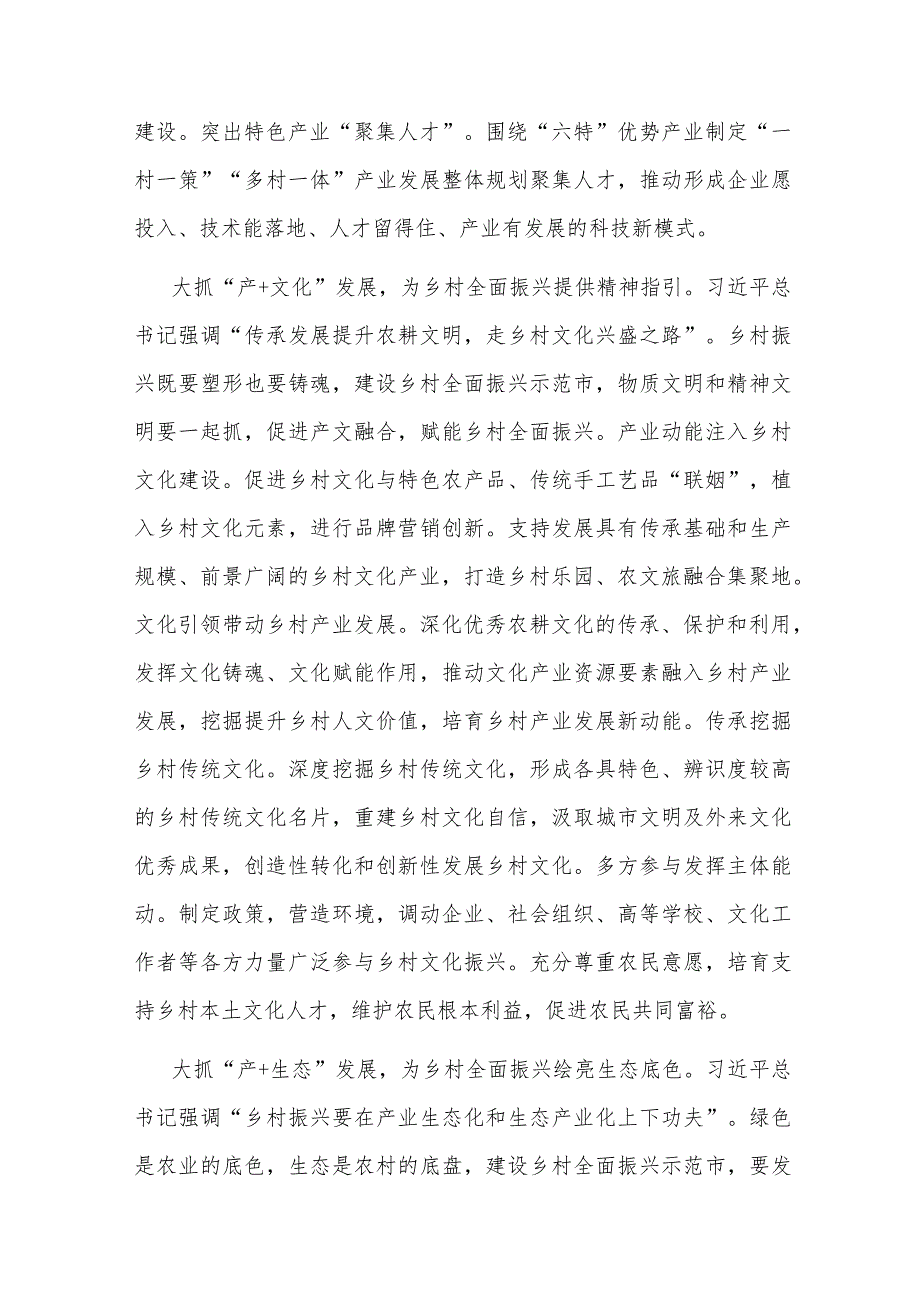 建设。突出特色产业“聚集人才”。围绕“六特”优势产业制定“一
村一策”“多村一体”产业发展整体规划聚集人才，推动形成企业愿
投入、技术能落地、人才留得住、产业有发展的科技新模式。
大抓“产+文化”发展，为乡村全面振兴提供精神指引。习近平总
书记强调“传承发展提升农耕文明，走乡村文化兴盛之路”。乡村振
兴既要塑形也要铸魂，建设乡村全面振兴示范市，物质文明和精神文
明要一起抓，促进产文融合，赋能乡村全面振兴。产业动能注入乡村
文化建设。促进乡村文化与特色农产品、传统手工艺品“联姻”，植
入乡村文化元素，进行品牌营销创新。支持发展具有传承基础和生产
规模、前景广阔的乡村文化产业，打造乡村乐园、农文旅融合集聚地。
文化引领带动乡村产业发展。深化优秀农耕文化的传承、保护和利用，
发挥文化铸魂、文化赋能作用，推动文化产业资源要素融入乡村产业
发展，挖掘提升乡村人文价值，培育乡村产业发展新动能。传承挖掘
乡村传统文化。深度挖掘乡村传统文化，形成各具特色、辨识度较高
的乡村传统文化名片，重建乡村文化自信，汲取城市文明及外来文化
优秀成果，创造性转化和创新性发展乡村文化。多方参与发挥主体能
动。制定政策，营造环境，调动企业、社会组织、高等学校、文化工
作者等各方力量广泛参与乡村文化振兴。充分尊重农民意愿，培育支
持乡村本土文化人才，维护农民根本利益，促进农民共同富裕。
大抓“产+生态”发展，为乡村全面振兴绘亮生态底色。习近平总
书记强调“乡村振兴要在产业生态化和生态产业化上下功夫”。绿色
是农业的底色，生态是农村的底盘，建设乡村全面振兴示范市，要发